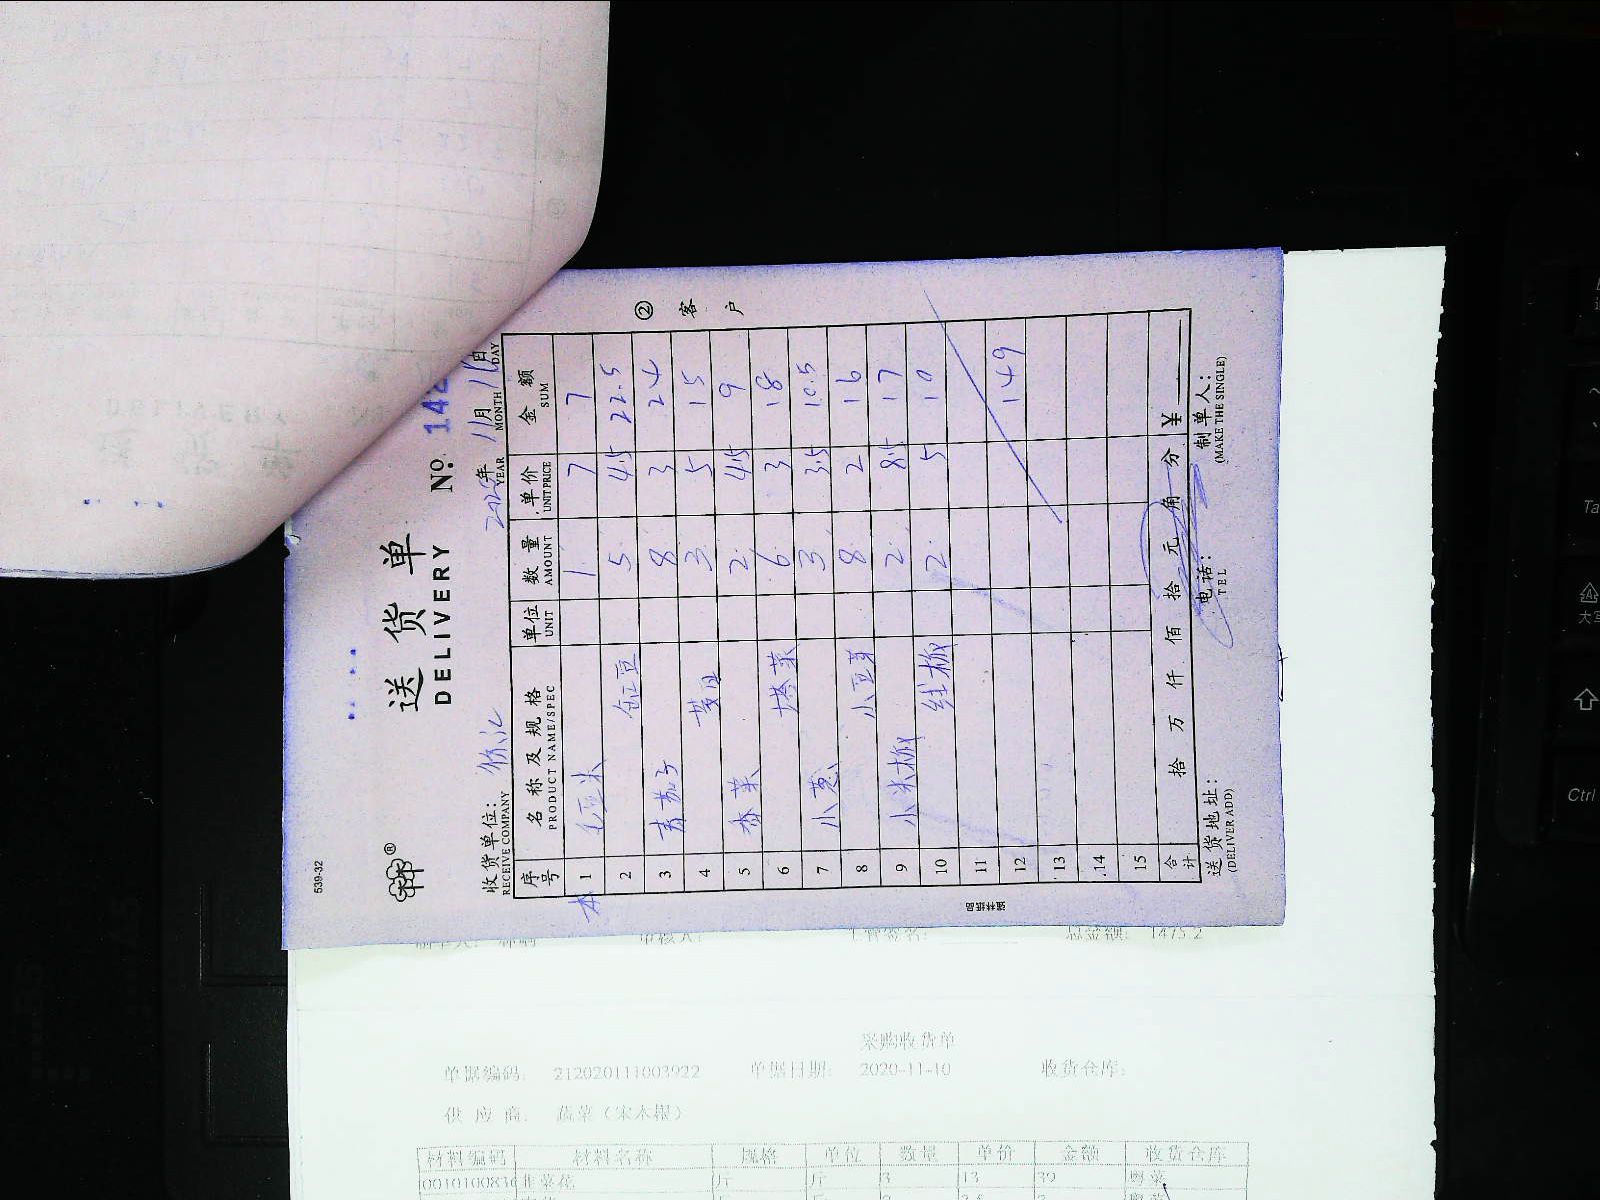 539-32
送货单
DELIVERY
No: 142
收货单位：
RECEIVE COMPANY
年 11月 日
YEAR MONTH DAY
② 客户
序号 名称及规格 单位 数量 单价 金额
PRODUCT NAME/SPEC UNIT AMOUNT UNIT PRICE SUM
1 毛豆米 1 7 7
2 豇豆 5 4.5 22.5
3 青茄子 8 3 24
4 3 5 15
5 香菜 2 4.5 9
6 塔菜 6 3 18
7 小葱 3 3.5 10.5
8 小豆芽 8 2 16
9 小米椒 2 8.5 17
10 线椒 2 5 10
11
12 149
13
14
15
合计 拾 万 仟 佰 拾 元 角 分 ¥
送货地址：
(DELIVER ADD)
电话：
TEL
制单人：
(MAKE THE SINGLE)
总金额： 1475.2
采购收货单
单据编码： 212020111003922 单据日期： 2020-11-10 收货仓库：
供应商： 蔬菜（宋木根）
材料编码 材料名称 规格 单位 数量 单价 金额 收货仓库
韭菜花 斤 斤 3 13 39 粤菜
Ctrl